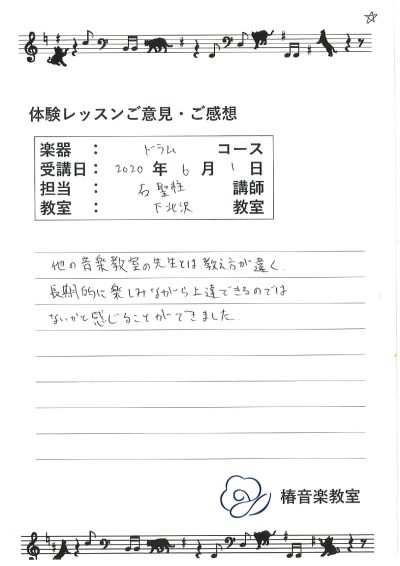 体験レッスンご意見・ご感想
楽器 : ドラム コース
受講日: 2020 年 6 月 1 日
担当 : 石 聖柱 講師
教室 : 下北沢 教室
他の音楽教室の先生とは教え方が違く、
長期的に楽しみながら上達できるのでは
ないかと感じることができました。
椿音楽教室